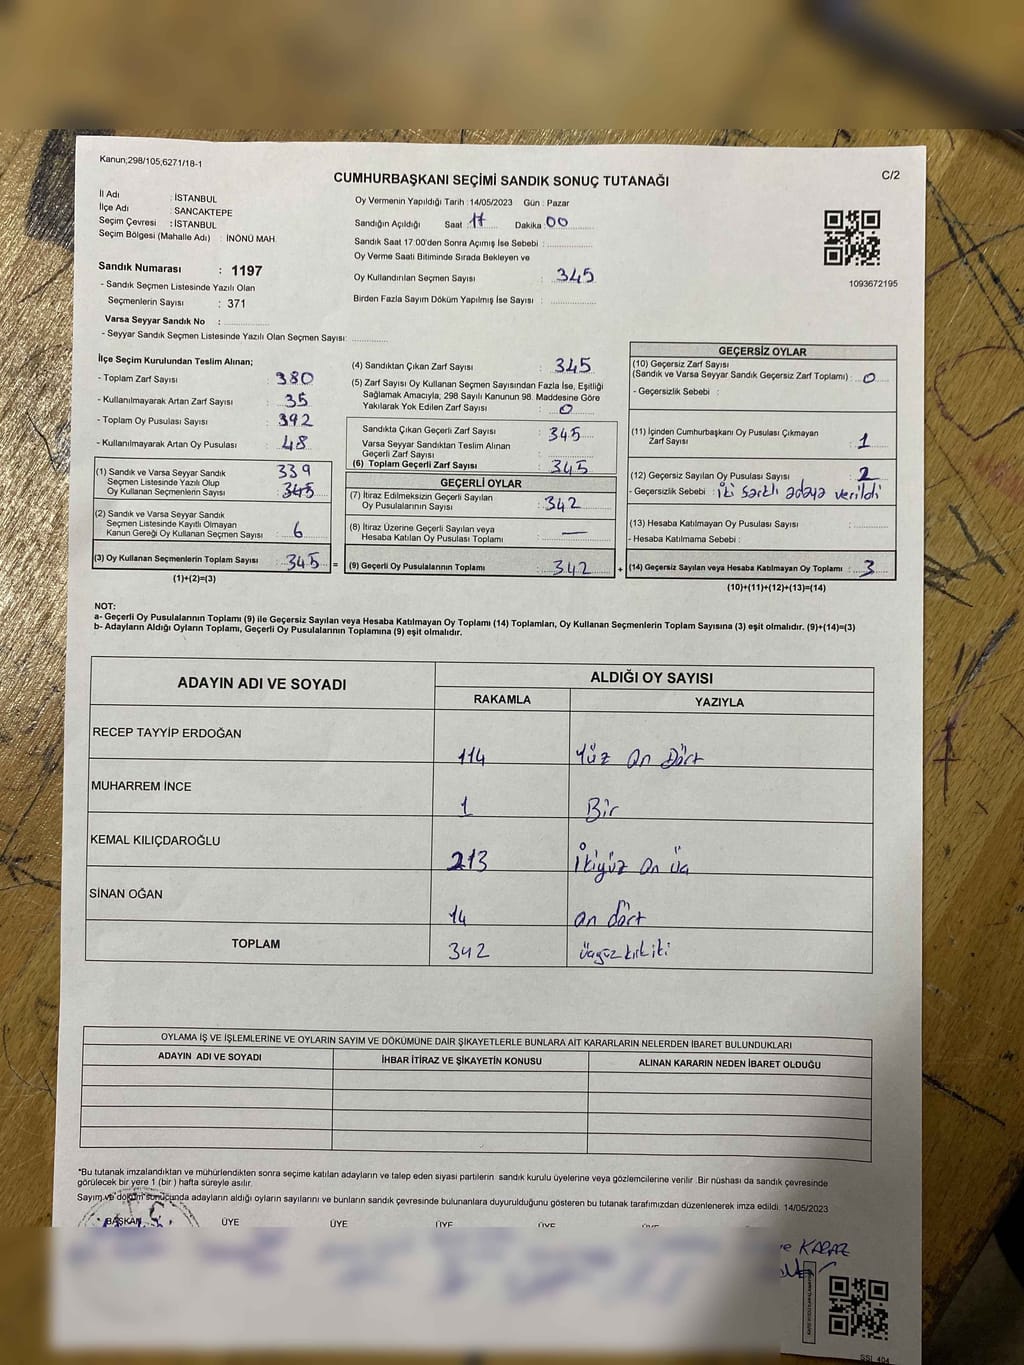 Kanun;298/105,6271/18-1
C/2
CUMHURBAŞKANI SEÇİMİ SANDIK SONUÇ TUTANAĞI
İl Adı : İSTANBUL
İlçe Adı : SANCAKTEPE
Seçim Çevresi : İSTANBUL
Seçim Bölgesi (Mahalle Adı) : İNÖNÜ MAH.
Sandık Numarası : 1197
- Sandık Seçmen Listesinde Yazılı Olan
Seçmenlerin Sayısı : 371
Varsa Seyyar Sandık No :
- Seyyar Sandık Seçmen Listesinde Yazılı Olan Seçmen Sayısı:
Oy Vermenin Yapıldığı Tarih :14/05/2023 Gün : Pazar
Sandığın Açıldığı Saat : 17 Dakika : 00
Sandık Saat 17.00'den Sonra Açımış İse Sebebi :
Oy Verme Saati Bitiminde Sırada Bekleyen ve
Oy Kullandırılan Seçmen Sayısı : 345
Birden Fazla Sayım Döküm Yapılmış İse Sayısı :
1093672195
İlçe Seçim Kurulundan Teslim Alınan;
- Toplam Zarf Sayısı : 380
- Kullanılmayarak Artan Zarf Sayısı : 35
- Toplam Oy Pusulası Sayısı : 392
- Kullanılmayarak Artan Oy Pusulası : 48
(1) Sandık ve Varsa Seyyar Sandık 339
Seçmen Listesinde Yazılı Olup
Oy Kullanan Seçmenlerin Sayısı : 345
(2) Sandık ve Varsa Seyyar Sandık
Seçmen Listesinde Kayıtlı Olmayan
Kanun Gereği Oy Kullanan Seçmen Sayısı : 6
(3) Oy Kullanan Seçmenlerin Toplam Sayısı : 345 =
(1)+(2)=(3)
(4) Sandıktan Çıkan Zarf Sayısı : 345
(5) Zarf Sayısı Oy Kullanan Seçmen Sayısından Fazla İse, Eşitliği
Sağlamak Amacıyla, 298 Sayılı Kanunun 98. Maddesine Göre
Yakılarak Yok Edilen Zarf Sayısı : 0
Sandıkta Çıkan Geçerli Zarf Sayısı : 345
Varsa Seyyar Sandıktan Teslim Alınan
Geçerli Zarf Sayısı :
(6) Toplam Geçerli Zarf Sayısı : 345
GEÇERLİ OYLAR
(7) İtiraz Edilmeksizin Geçerli Sayılan
Oy Pusulalarının Sayısı : 342
(8) İtiraz Üzerine Geçerli Sayılan veya
Hesaba Katılan Oy Pusulası Toplamı : —
(9) Geçerli Oy Pusulalarının Toplamı : 342 +
GEÇERSİZ OYLAR
(10) Geçersiz Zarf Sayısı
(Sandık ve Varsa Seyyar Sandık Geçersiz Zarf Toplamı) : 0
- Geçersizlik Sebebi :
(11) İçinden Cumhurbaşkanı Oy Pusulası Çıkmayan
Zarf Sayısı : 1
(12) Geçersiz Sayılan Oy Pusulası Sayısı : 2
- Geçersizlik Sebebi : iki farklı adaya verildi
(13) Hesaba Katılmayan Oy Pusulası Sayısı :
- Hesaba Katılmama Sebebi :
(14) Geçersiz Sayılan veya Hesaba Katılmayan Oy Toplamı : 3
(10)+(11)+(12)+(13)=(14)
NOT:
a- Geçerli Oy Pusulalarının Toplamı (9) ile Geçersiz Sayılan veya Hesaba Katılmayan Oy Toplamı (14) Toplamları, Oy Kullanan Seçmenlerin Toplam Sayısına (3) eşit olmalıdır. (9)+(14)=(3)
b- Adayların Aldığı Oyların Toplamı, Geçerli Oy Pusulalarının Toplamına (9) eşit olmalıdır.
ADAYIN ADI VE SOYADI
ALDIĞI OY SAYISI
RAKAMLA YAZIYLA
RECEP TAYYİP ERDOĞAN 114 Yüz On Dört
MUHARREM İNCE 1 Bir
KEMAL KILIÇDAROĞLU 213 İkiyüz on üç
SİNAN OĞAN 14 on dört
TOPLAM 342 üçyüz kırk iki
OYLAMA İŞ VE İŞLEMLERİNE VE OYLARIN SAYIM VE DÖKÜMÜNE DAİR ŞİKAYETLERLE BUNLARA AİT KARARLARIN NELERDEN İBARET BULUNDUKLARI
ADAYIN ADI VE SOYADI İHBAR İTİRAZ VE ŞİKAYETİN KONUSU ALINAN KARARIN NEDEN İBARET OLDUĞU
*Bu tutanak imzalandıktan ve mühürlendikten sonra seçime katılan adayların ve talep eden siyasi partilerin sandık kurulu üyelerine veya gözlemcilerine verilir. Bir nüshası da sandık çevresinde
görülecek bir yere 1 (bir) hafta süreyle asılır.
Sayım ve döküm sonucunda adayların aldığı oyların sayılarını ve bunların sandık çevresinde bulunanlara duyurulduğunu gösteren bu tutanak tarafımızdan düzenlenerek imza edildi. 14/05/2023
BAŞKAN ÜYE ÜYE ÜYE ÜYE ÜYE
KARAZ